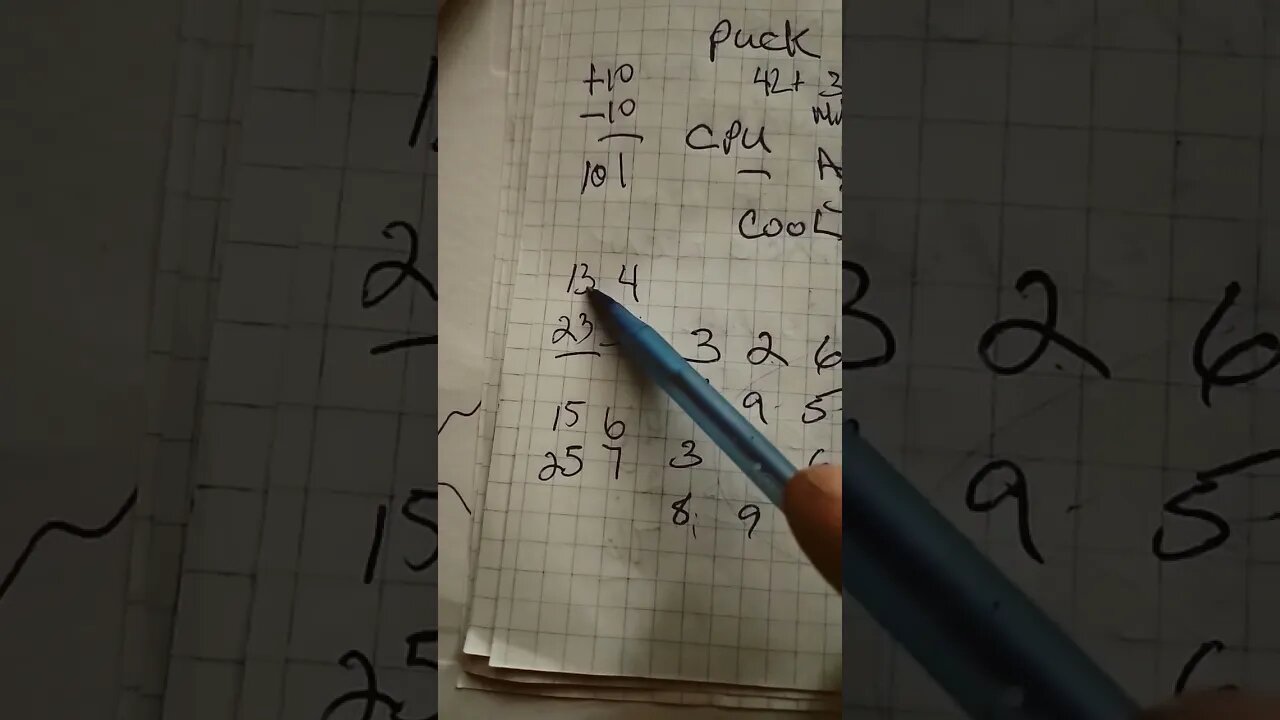 Puck
+10
42+ 3
-10
CPU
101
COOL
13 4
23
3 2 6
9 5
15 6
25 7
3
8, 9